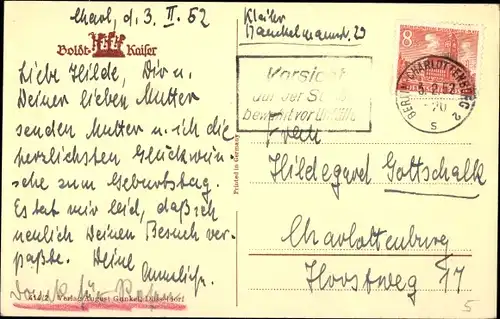 Charl, d. 3. II. 52
Boldt-Kaiser
Liebe Hilde, Dir u.
Deiner lieben Mutter
senden Mutter u. ich die
herzlichsten Glückwün-
sche zum Geburtstag.
Es tat mir leid, daß ich
neulich Deinen Besuch ver-
paßte. Deine
Annelise.
Dank für
Verlag August Gunkel, Düsseldorf
Printed in Germany
Vorsicht
auf der
bewahrt vor Unfällen
8
BERLIN-CHARLOTTENBURG 2
5.2.52
-20
s
Hildegard Gottschalk
Charlottenburg
Horstweg 17
5